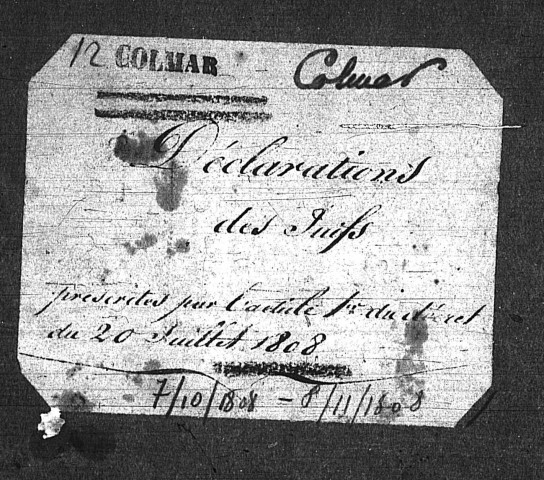 12 COLMAR Colmar
Déclarations
des Juifs
prescrites par l'article 1er du décret
du 20 Juillet 1808
7/10/1808 - 8/11/1808